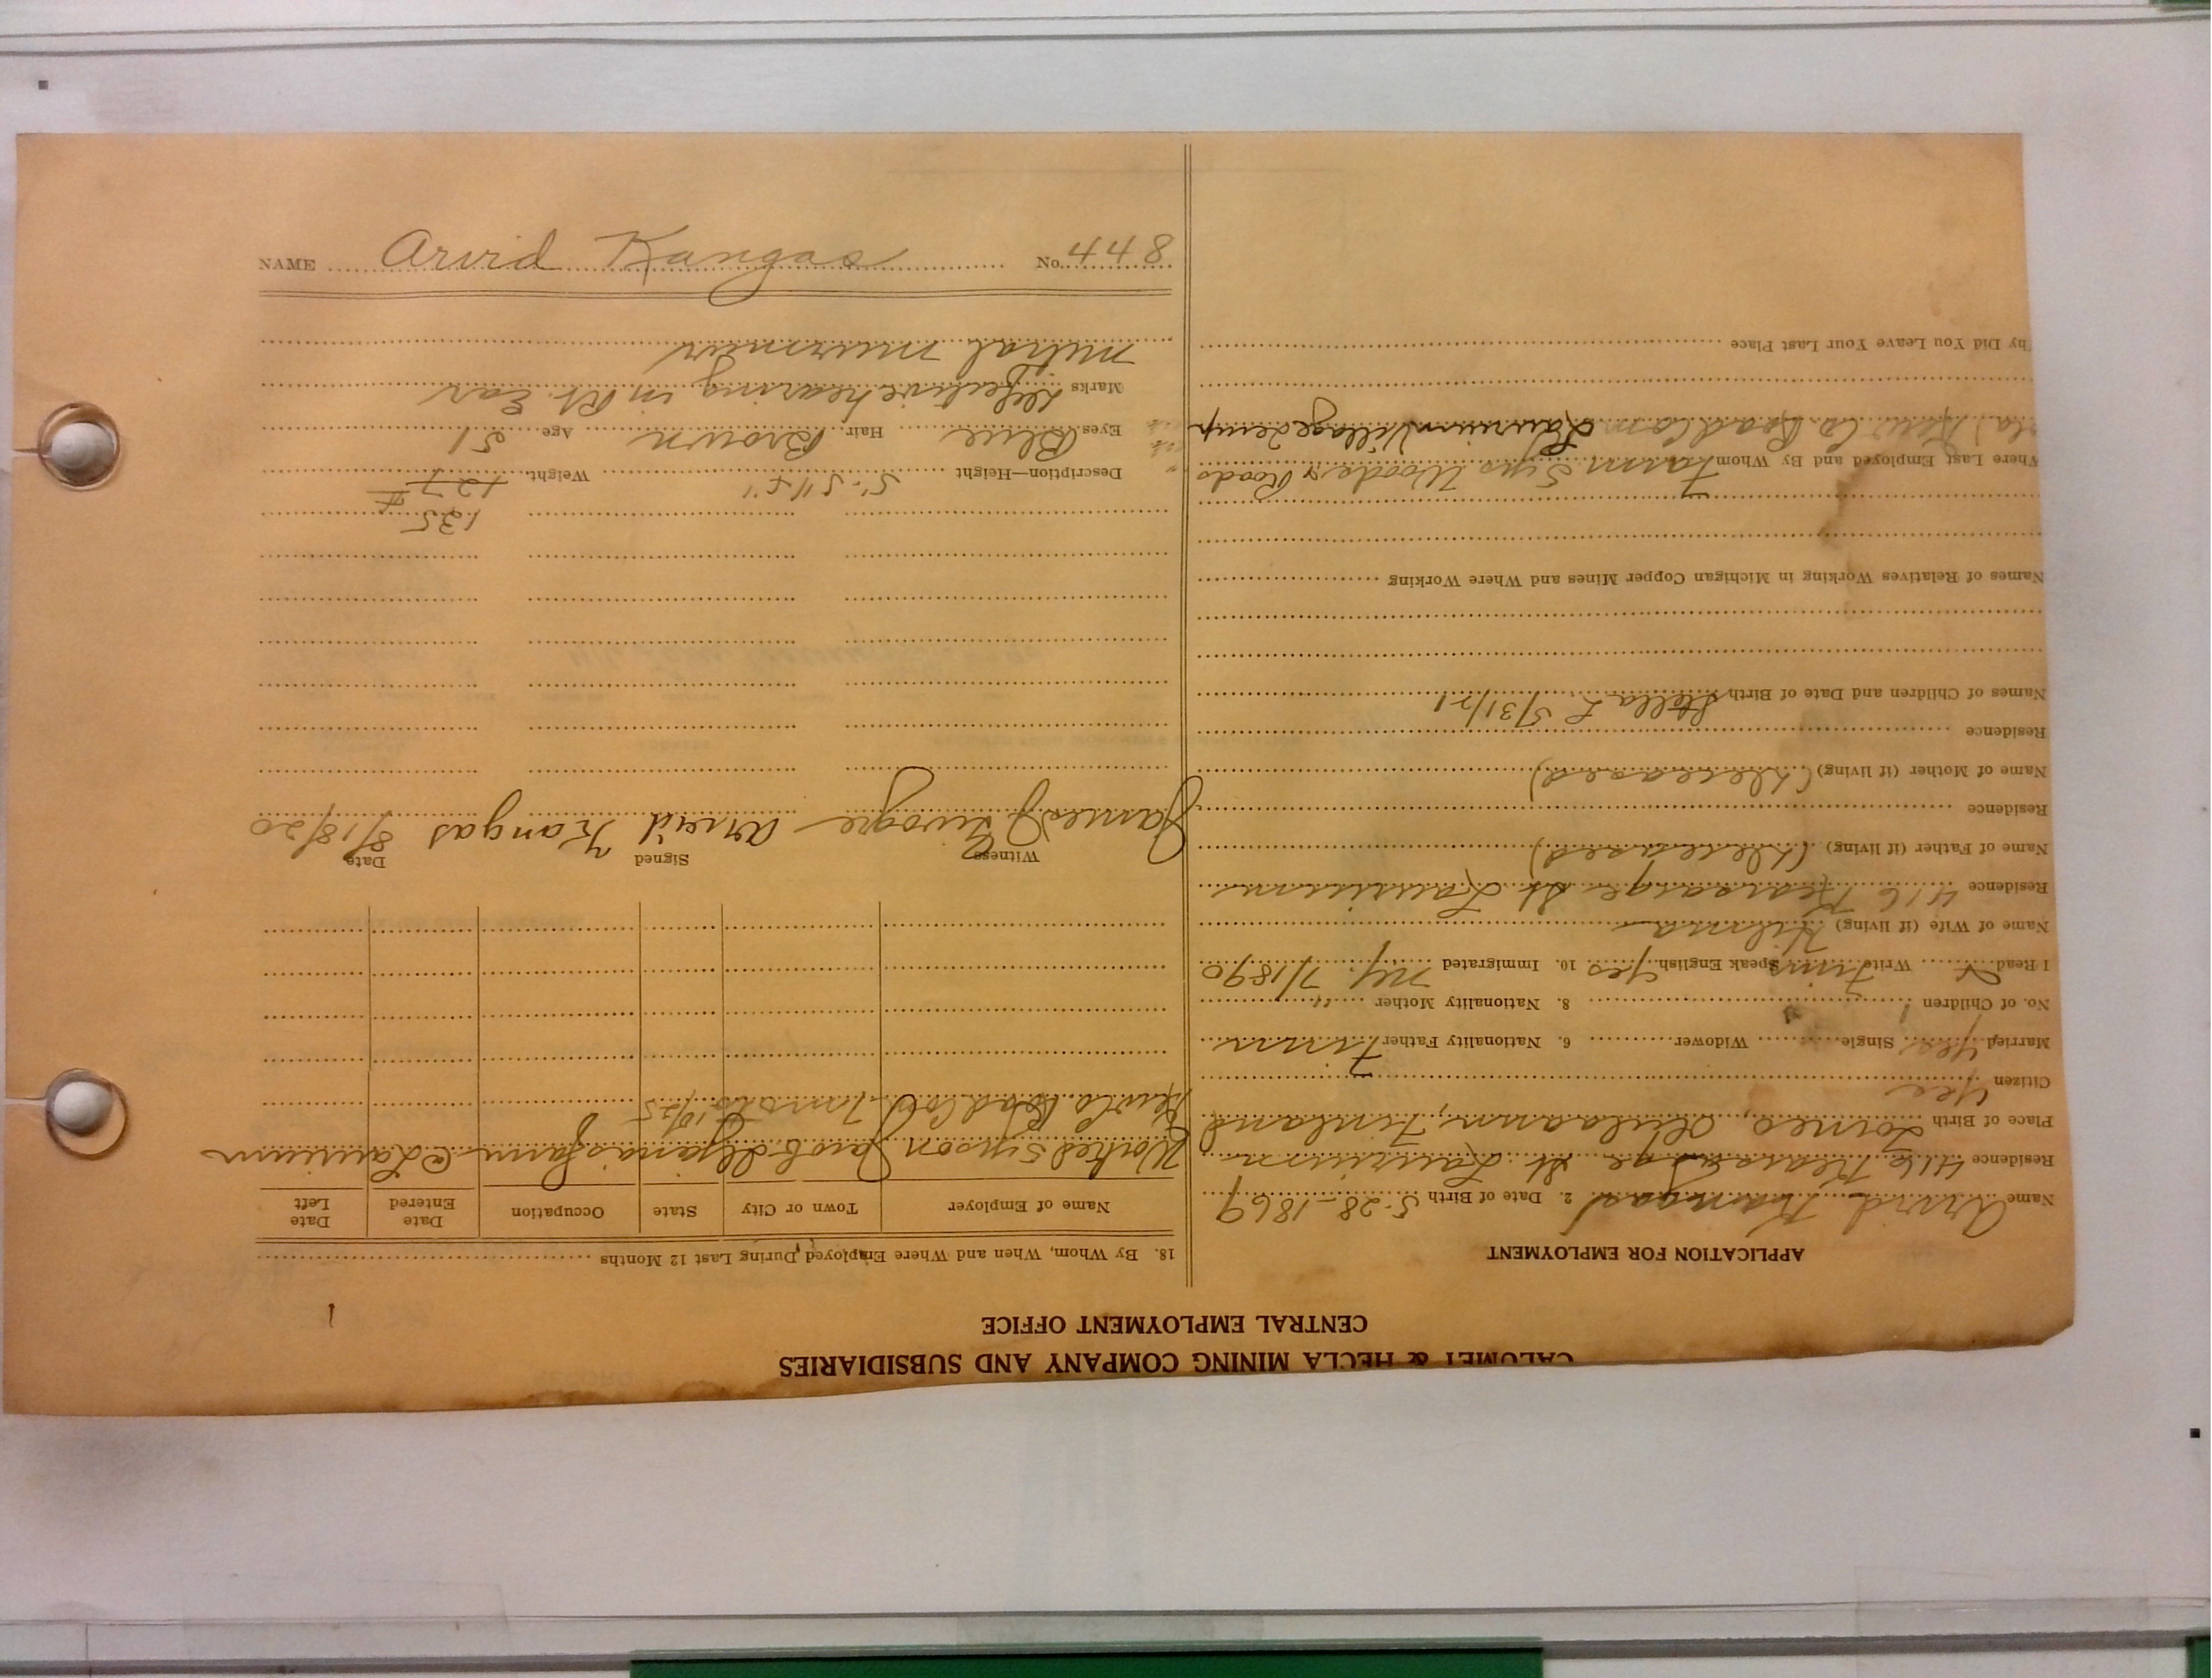 CALUMET & HECLA MINING COMPANY AND SUBSIDIARIES
CENTRAL EMPLOYMENT OFFICE
1
APPLICATION FOR EMPLOYMENT
Name Arvid Kangas 2. Date of Birth 5-28-1869
Residence 416 Kearsarge St Laurium
Place of Birth Torneo, Finland
Citizen Yes
Married Yes Single Widower 6. Nationality Father Finn
No. of Children 1 8. Nationality Mother "
I Read Write Finn Speak English Yes 10. Immigrated NY. 7/1890
Name of Wife (if living) Hilma
Residence 416 Kearsarge St Laurium
Name of Father (if living) (Deceased)
Residence
Name of Mother (if living) (Deceased)
Residence
Names of Children and Date of Birth Stella L 5/31/21
Names of Relatives Working in Michigan Copper Mines and Where Working
Where Last Employed and By Whom Farm 5 yrs Woods & Roads
Kew Co Road Com Laurium Village Temp
hy Did You Leave Your Last Place
18. By Whom, When and Where Employed During Last 12 Months
Name of Employer Town or City State Occupation Date Entered Date Left
Worked on Jacob farm @ Laurium
Kew Co Road Com 7 months 10/25
Witness Signed Date
James Arvid Kangas 8/18/20
135
Description—Height 5'-5 1/2" Weight 127 #
Eyes Blue Hair Brown Age 51
Marks Defective hearing in Rt. Ear
mitral murmur
NAME Arvid Kangas No. 448